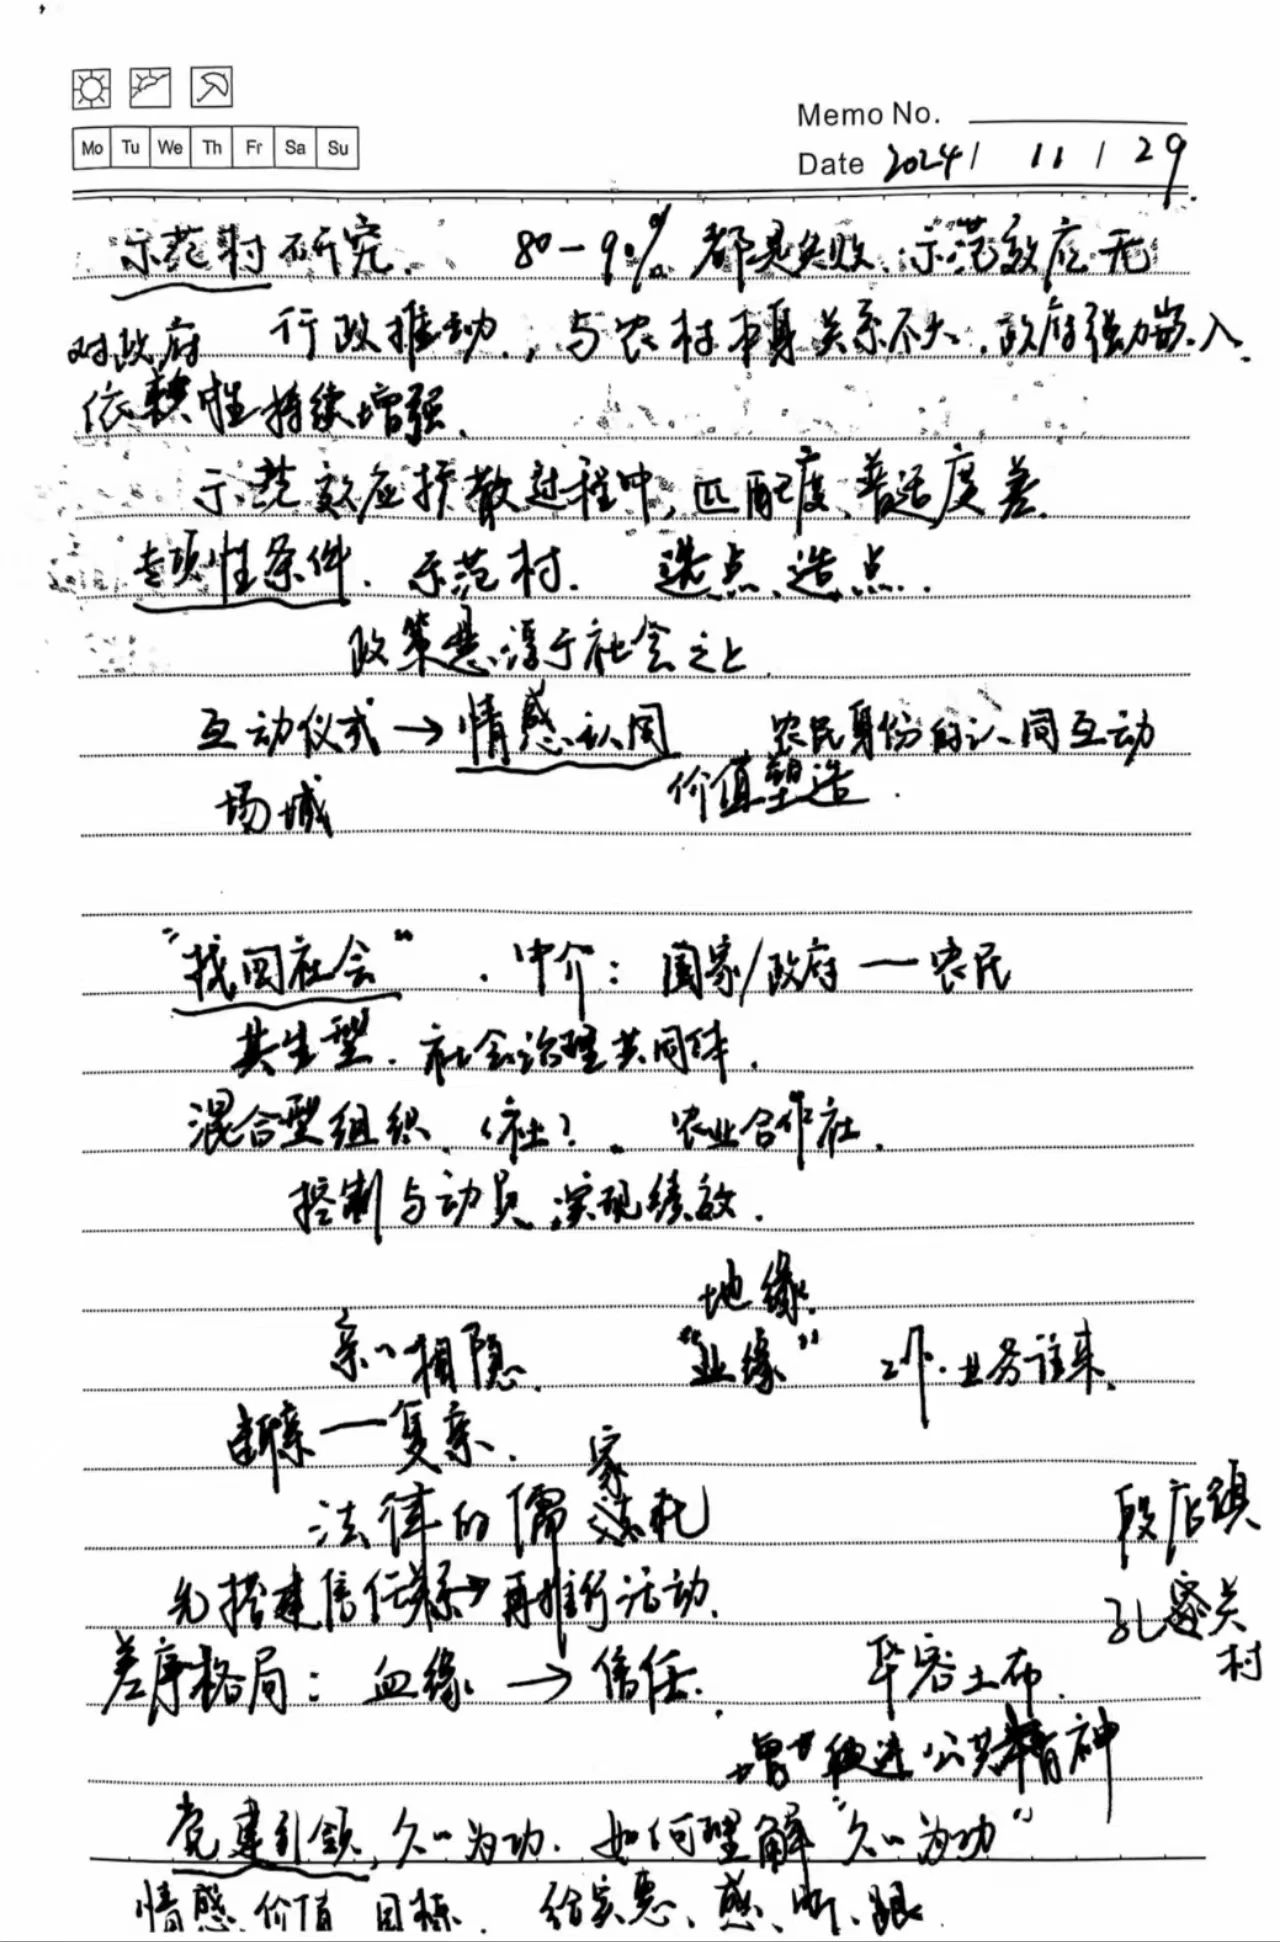 Memo No.
Mo Tu We Th Fr Sa Su
Date 2024 / 11 / 29
示范村研究. 80-90% 都是失败、示范效应无
对政府 行政推动., 与农村本身关系不大. 政府强力嵌入.
依赖性持续增强.
示范效应扩散过程中, 匹配度、普适度差.
专项性条件. 示范村. 选点、造点.
政策悬浮于社会之上.
互动仪式 → 情感认同 农民身份的认同互动
场域 价值塑造.
“找回社会”. 中介: 国家/政府 — 农民
共生型. 社会治理共同体.
混合型组织. (社). 农业合作社.
控制与动员 实现绩效.
地缘.
亲亲相隐. “业缘” 业务往来.
断亲 — 复亲.
家
法律的儒 化
先搭建信任关系 → 再推行活动.
段店镇
孔 村
差序格局: 血缘 → 信任. 华容土布.
增 公共精神
党建引领, 久久为功. 如何理解“久久为功”
情感、价值 目标. 给实惠、感、 、跟